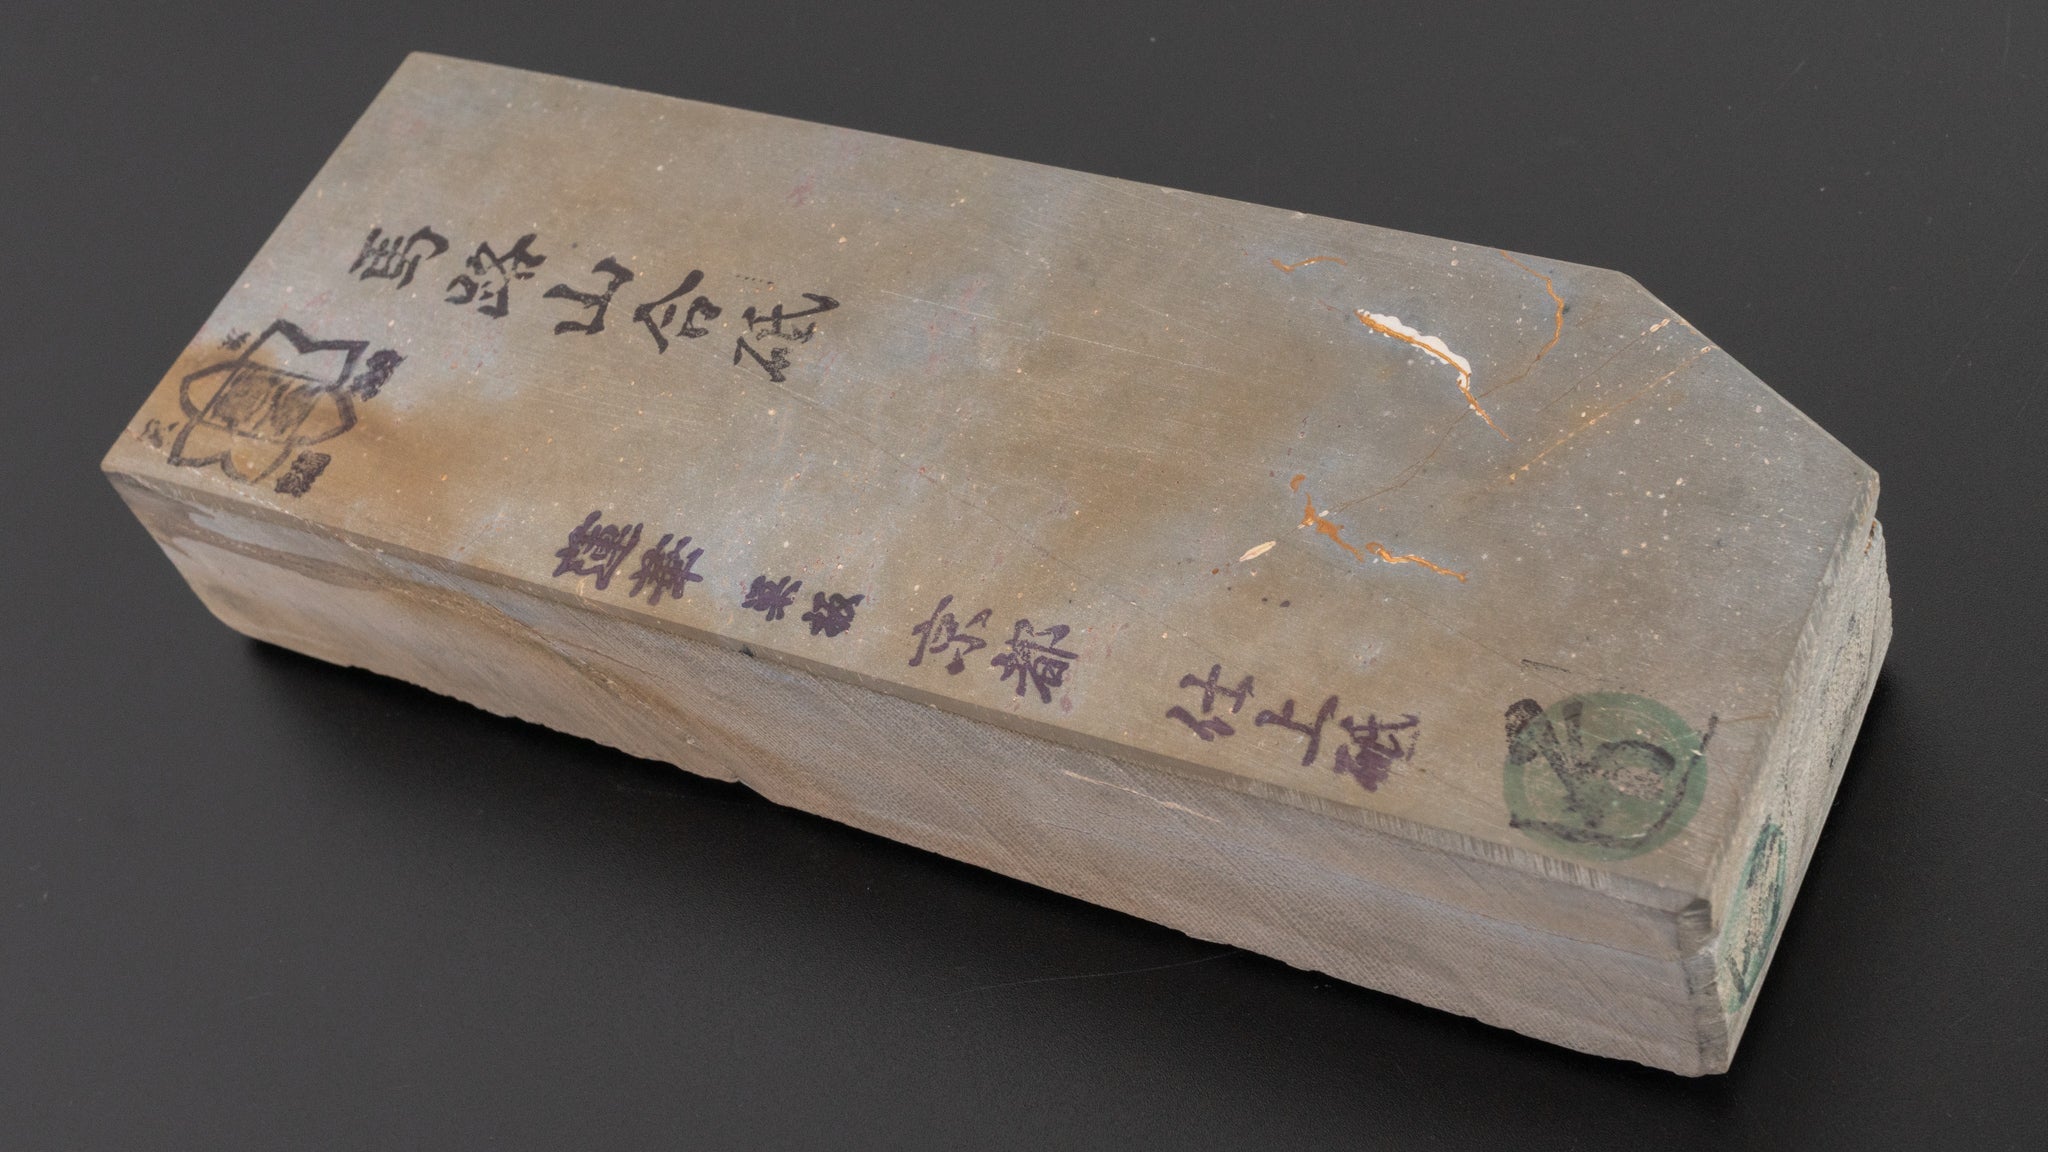 馬路山合砥
蓮華 巣板 京都 仕上砥